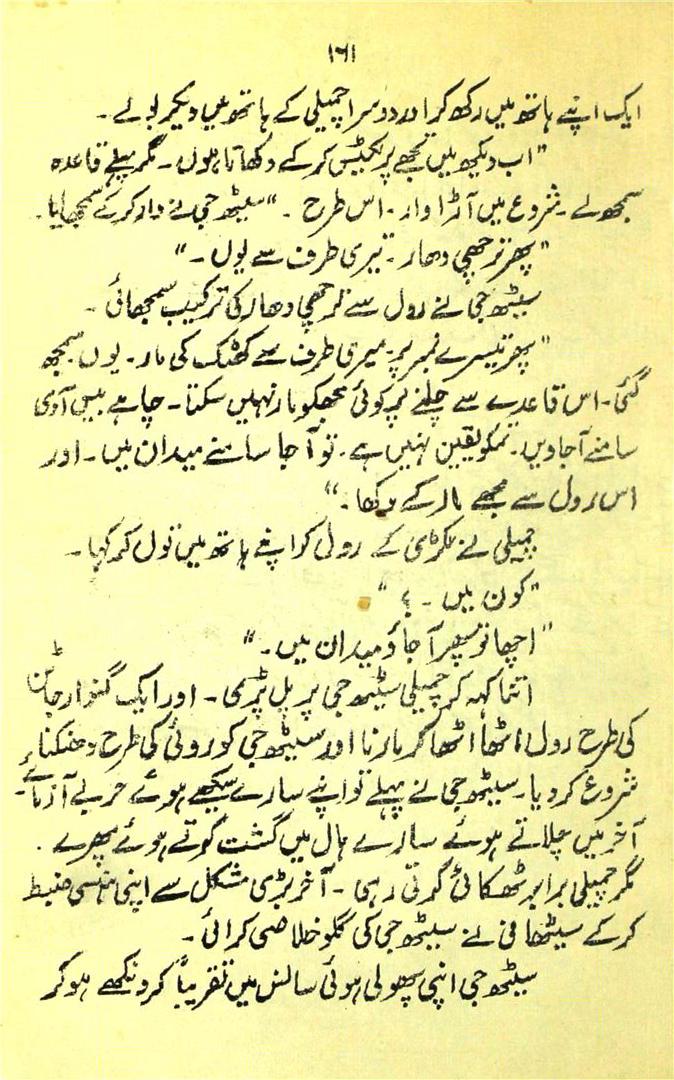 ۱۶۱
ایک اپنے ہاتھ میں رکھ کر اور دوسرا چمپیلی کے ہاتھ میں دیکر بولے۔
"اب دیکھ میں تجھے پریکٹیس کر کے دکھاتا ہوں۔ مگر پہلے قاعدہ
سمجھ لے۔ شروع میں آڑا وار۔ اس طرح۔" سیٹھ جی نے وار کر کے سمجھایا۔
"پھر ترچھی دھار۔ تیری طرف سے یوں۔"
سیٹھ جی نے رول سے ترچھی دھار کی ترکیب سمجھائی۔
"پھر تیسرے نمبر پر میری طرف سے کھٹک کی مار۔ یوں سمجھ
گئی۔ اس قاعدے سے چلنے پر کوئی مجھکو مار نہیں سکتا۔ چاہے بیس آدمی
سامنے آجاویں۔ تمکو یقین نہیں ہے۔ تو آ جا سامنے میدان میں۔ اور
اس رول سے مجھے مار کے دکھا۔"
چمیلی نے لکڑی کے رول کو اپنے ہاتھ میں تول کر کہا۔
"کون میں۔؟"
"اچھا تو پھر آ جاؤ میدان میں۔"
اتنا کہہ کر چمیلی سیٹھ جی پر پل پڑی۔ اور ایک گنوار جاٹن
کی طرح رول اٹھا اٹھا کر مارنا اور سیٹھ جی کو روئی کی طرح دھنکنا
شروع کر دیا۔ سیٹھ جی نے پہلے تو اپنے سارے سیکھے ہوئے حربے آزمائے۔
آخر میں چلاتے ہوئے سارے ہال میں گشت کرتے ہوئے پھرے۔
مگر چمیلی برابر ٹھکائی کرتی رہی۔ آخر بڑی مشکل سے اپنی ہنسی ضبط
کر کے سیٹھانی نے سیٹھ جی کی گلو خلاصی کرائی۔
سیٹھ جی اپنی پھولی ہوئی سانس میں تقریباً کرونکھے ہو کر